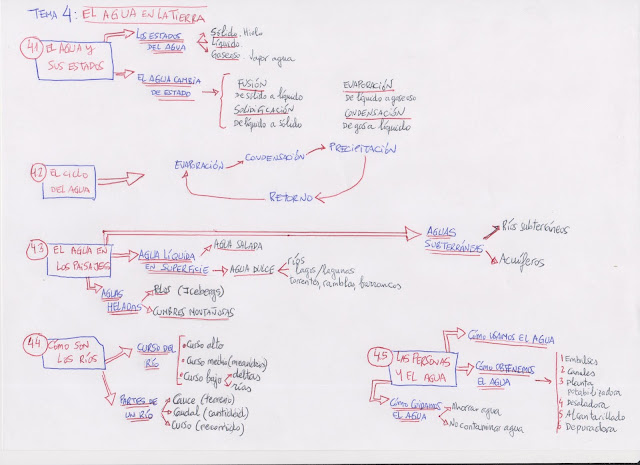 TEMA 4: EL AGUA EN LA TIERRA
4.1 EL AGUA Y SUS ESTADOS
LOS ESTADOS DEL AGUA
Sólido. Hielo
Líquido.
Gaseoso. Vapor agua
EL AGUA CAMBIA DE ESTADO
FUSIÓN
De sólido a líquido
SOLIDIFICACIÓN
De líquido a sólido
EVAPORACIÓN
De líquido a gaseoso
CONDENSACIÓN
De gas a líquido
4.2 EL CICLO DEL AGUA
EVAPORACIÓN
CONDENSACIÓN
PRECIPITACIÓN
RETORNO
4.3 EL AGUA EN LOS PAISAJES
AGUAS SUBTERRÁNEAS
Ríos subterráneos
Acuíferos
AGUA LÍQUIDA EN SUPERFICIE
AGUA SALADA
AGUA DULCE
ríos
lagos/lagunas
torrentes, ramblas, barrancos
AGUAS HELADAS
POLOS (Icebergs)
CUMBRES MONTAÑOSAS
4.4 CÓMO SON LOS RÍOS
CURSO DEL RÍO
Curso alto
Curso medio (meandros)
Curso bajo
deltas
rías
PARTES DE UN RÍO
Cauce (terreno)
Caudal (cantidad)
Curso (recorrido)
4.5 LAS PERSONAS Y EL AGUA
CÓMO USAMOS EL AGUA
CÓMO OBTENEMOS EL AGUA
1 Embalses
2 Canales
3 Planta potabilizadora
4 Desaladora
5 Alcantarillado
6 Depuradora
CÓMO CUIDAMOS EL AGUA
Ahorrar agua
No contaminar agua